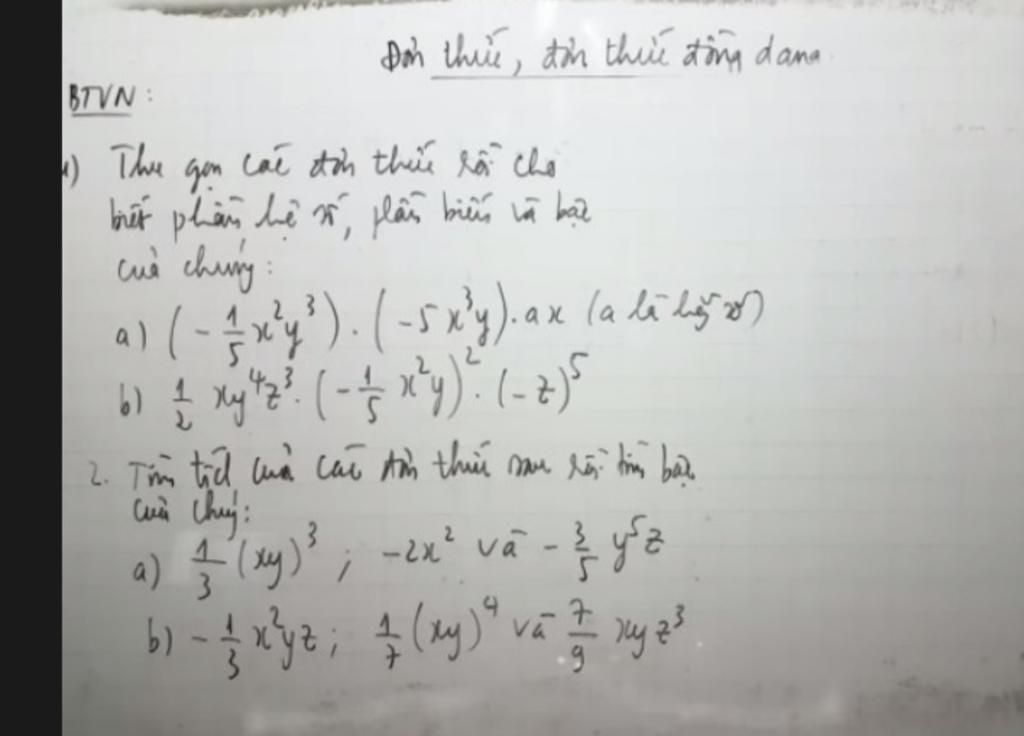 Đơn thức, đơn thức đồng dạng
BTVN:
1) Thu gọn các đơn thức rồi cho
biết phần hệ số, phần biến và bậc
của chúng:
a) (-1/5 x²y³) . (-5x³y) . ax (a là hằng số)
b) 1/2 xy⁴z³ . (-1/5 x²y)² . (-z)⁵
2. Tìm tích của các đơn thức sau rồi tìm bậc
của chúng:
a) 1/3 (xy)³ ; -2x² và -3/5 y⁵z
b) -1/3 x²yz ; 1/7 (xy)⁴ và 7/9 xyz³